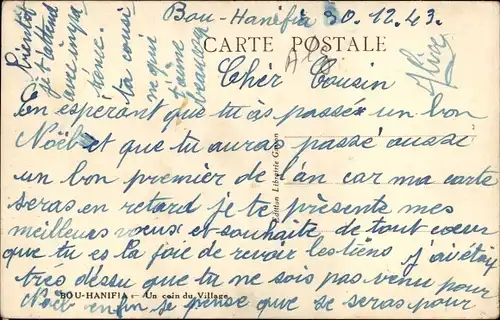 Bou-Hanifia 30.12.43.
CARTE POSTALE
Cher Cousin
En esperant que tu às passée un bon
Noël et que tu auras passé ausse
un bon premier de l'an car ma carte
seras en retard je te présente mes
meilleurs voeux et souhaite de tout coeur
que tu es la joie de revoir les tiens j'ai étay
tres déssu que tu ne sois pas venu pour
Noël enfin je pense que se seras pour
bientôt
je t'attend
avec impa
tience.
ta cousi
ne qui
t'aime
beaucoup
Edition Librairie
BOU-HANIFIA - Un coin du Village